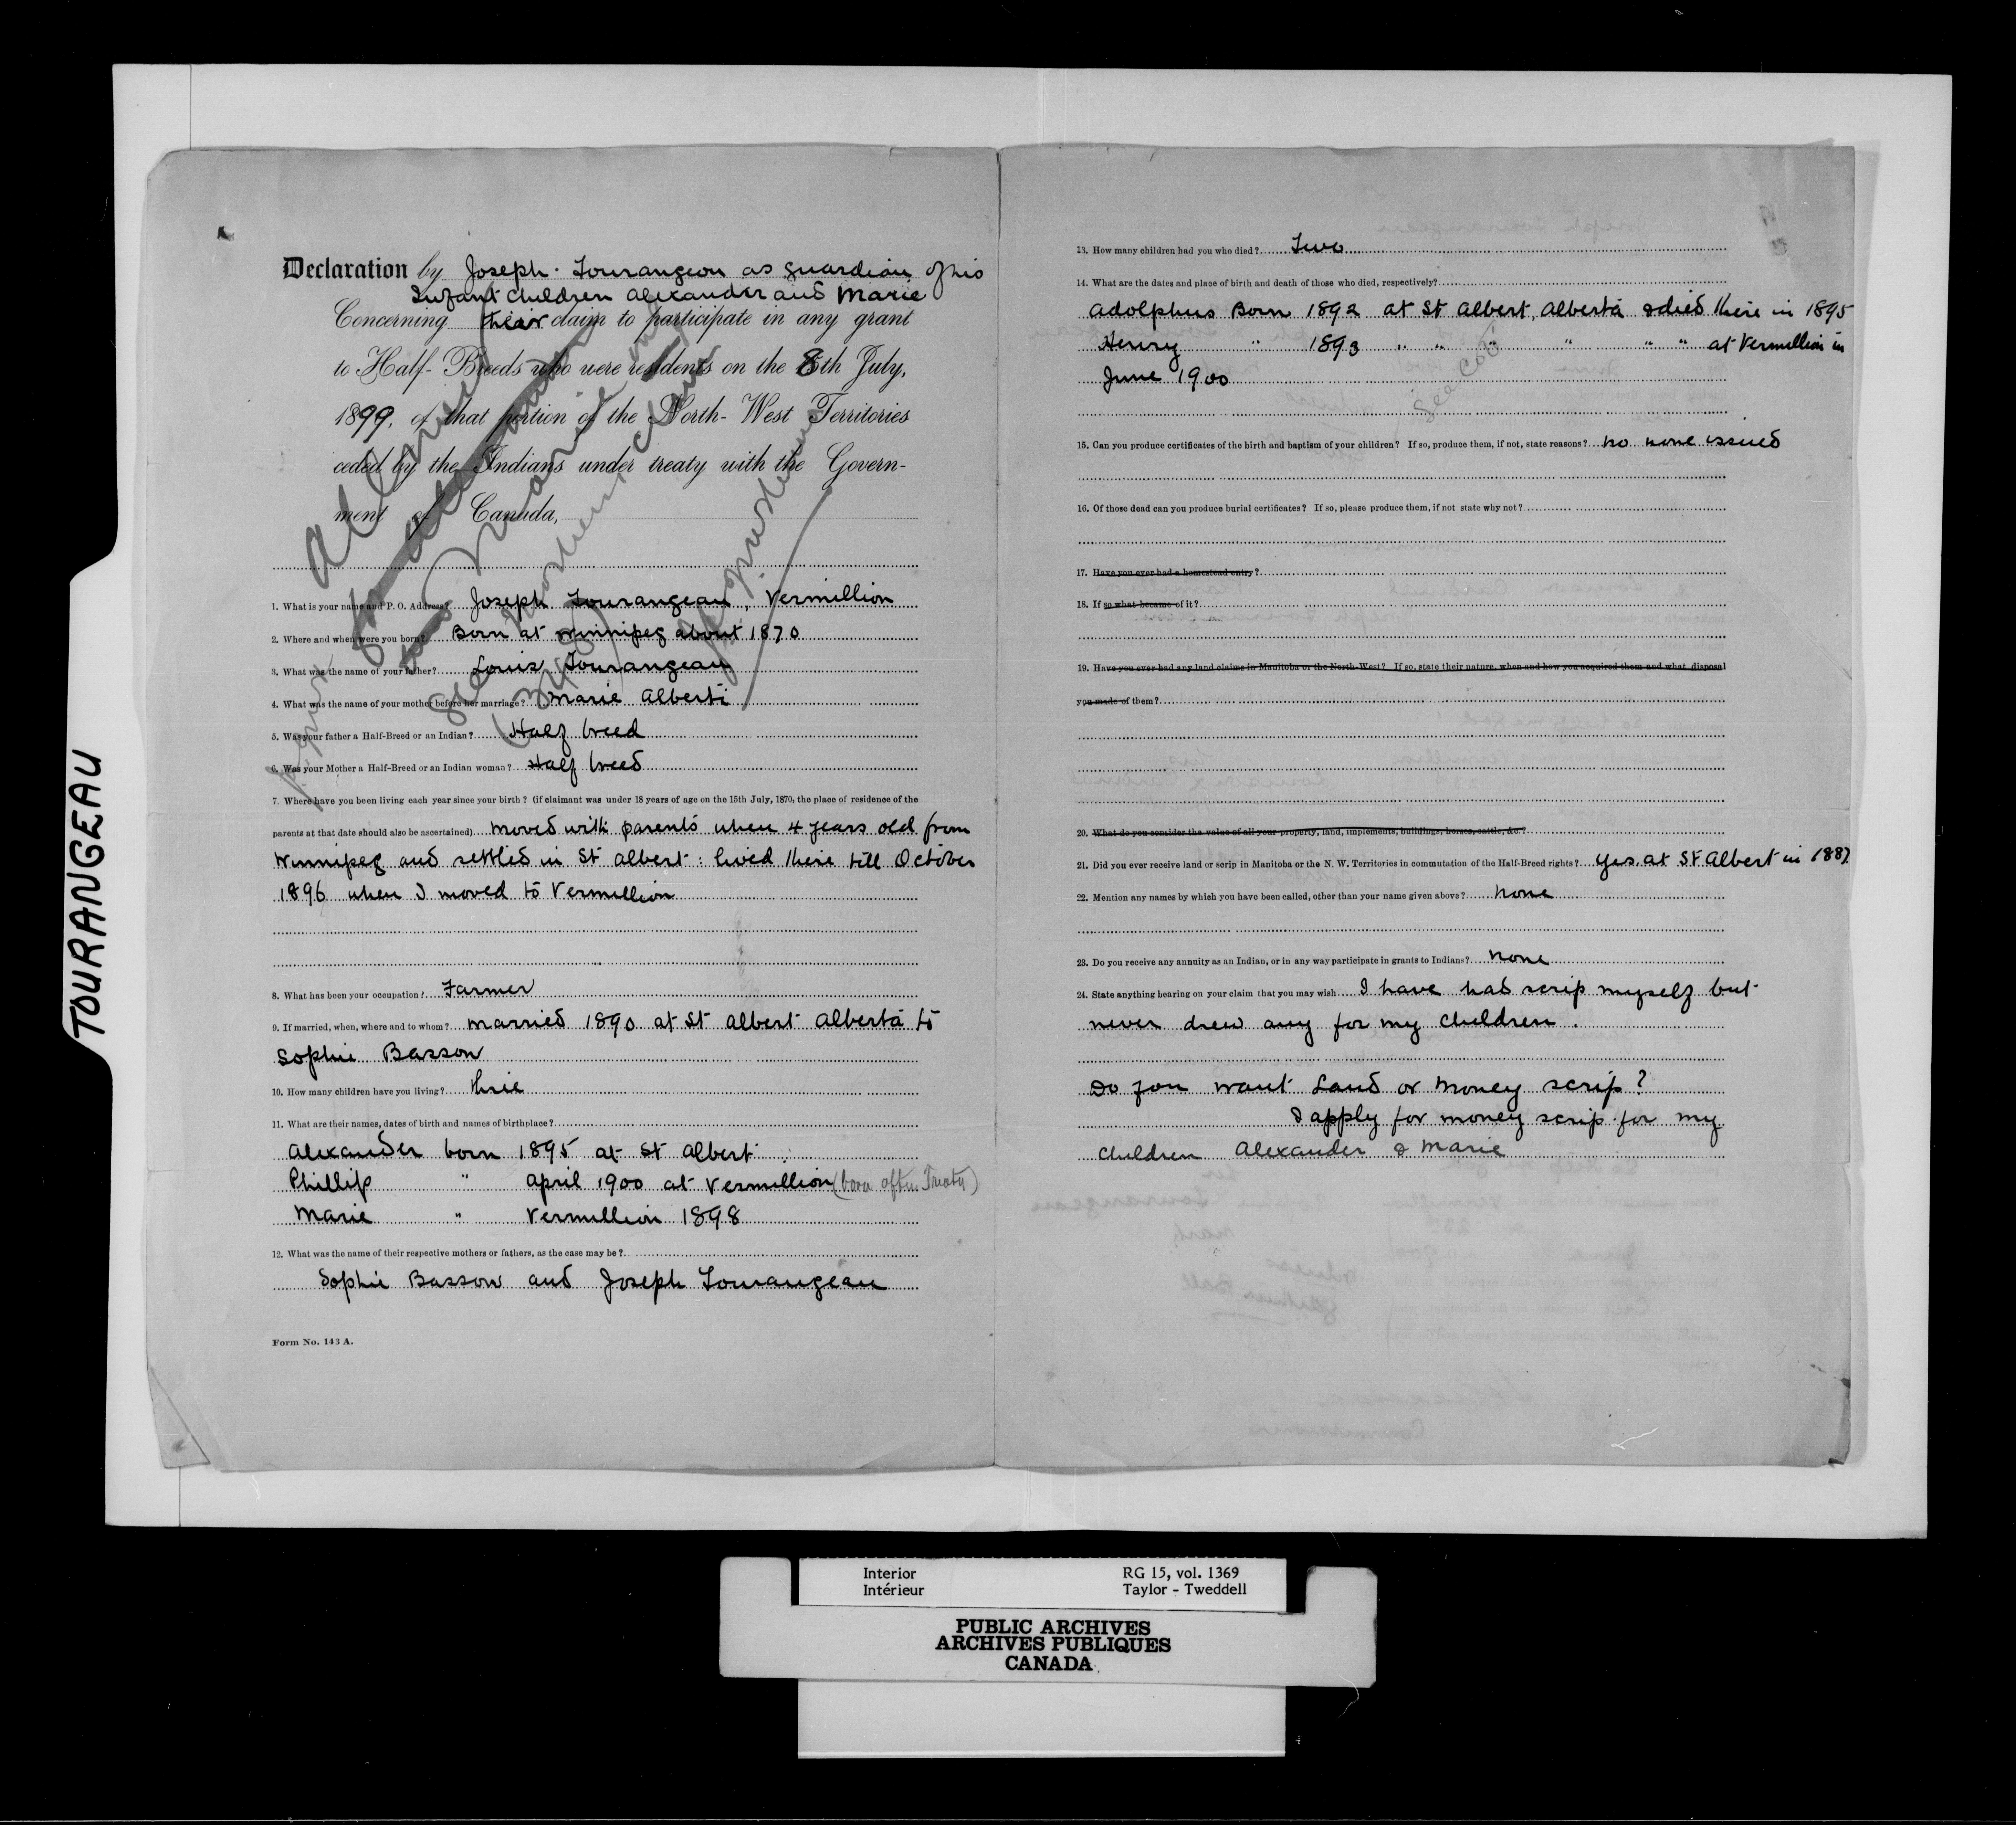 TOURANGEAU
Declaration by Joseph Tourangeau as guardian of his
Infant children Alexander and Marie
Concerning their claim to participate in any grant
to Half-Breeds who were residents on the 8th July,
1899, of that portion of the North-West Territories
ceded by the Indians under treaty with the Govern-
ment of Canada,
Allowed
See
1. What is your name and P. O. Address? Joseph Tourangeau, Vermillion
2. Where and when were you born? Born at Winnipeg about 1870
3. What was the name of your father? Louis Tourangeau
4. What was the name of your mother before her marriage? Marie Alberti
5. Was your father a Half-Breed or an Indian? Half breed
6. Was your Mother a Half-Breed or an Indian woman? Half breed
7. Where have you been living each year since your birth? (if claimant was under 18 years of age on the 15th July, 1870, the place of residence of the
parents at that date should also be ascertained) moved with parents when 4 years old from
Winnipeg and settled in St Albert: lived there till October
1896 when I moved to Vermillion
8. What has been your occupation? Farmer
9. If married, when, where and to whom? married 1890 at St Albert Alberta to
Sophie Basson
10. How many children have you living? three
11. What are their names, dates of birth and names of birthplace?
Alexander born 1895 at St Albert
Phillip " April 1900 at Vermillion (born after Treaty)
Marie " Vermillion 1898
12. What was the name of their respective mothers or fathers, as the case may be?
Sophie Basson and Joseph Tourangeau
Form No. 143 A.
13. How many children had you who died? Two
14. What are the dates and place of birth and death of those who died, respectively?
Adolphus Born 1892 at St Albert, Alberta & died there in 1895
Henry " 1893 " " " " " " at Vermillion in
June 1900
15. Can you produce certificates of the birth and baptism of your children? If so, produce them, if not, state reasons? no none issued
16. Of those dead can you produce burial certificates? If so, please produce them, if not state why not?
17. Have you ever had a homestead entry?
18. If so what became of it?
19. Have you ever had any land claims in Manitoba or the North-West? If so, state their nature, when and how you acquired them and what disposal
you made of them?
20. What do you consider the value of all your property, land, implements, buildings, horses, cattle, &c?
21. Did you ever receive land or scrip in Manitoba or the N. W. Territories in commutation of the Half-Breed rights? yes, at St Albert in 1887
22. Mention any names by which you have been called, other than your name given above? none
23. Do you receive any annuity as an Indian, or in any way participate in grants to Indians? none
24. State anything bearing on your claim that you may wish I have had scrip myself but
never drew any for my children.
Do you want Land or Money scrip?
I apply for money scrip for my
children Alexander & Marie
Interior RG 15, vol. 1369
Intérieur Taylor - Tweddell
PUBLIC ARCHIVES
ARCHIVES PUBLIQUES
CANADA